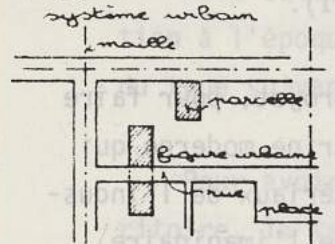 système urbain
maille
parcelle
figure urbaine
rue
place